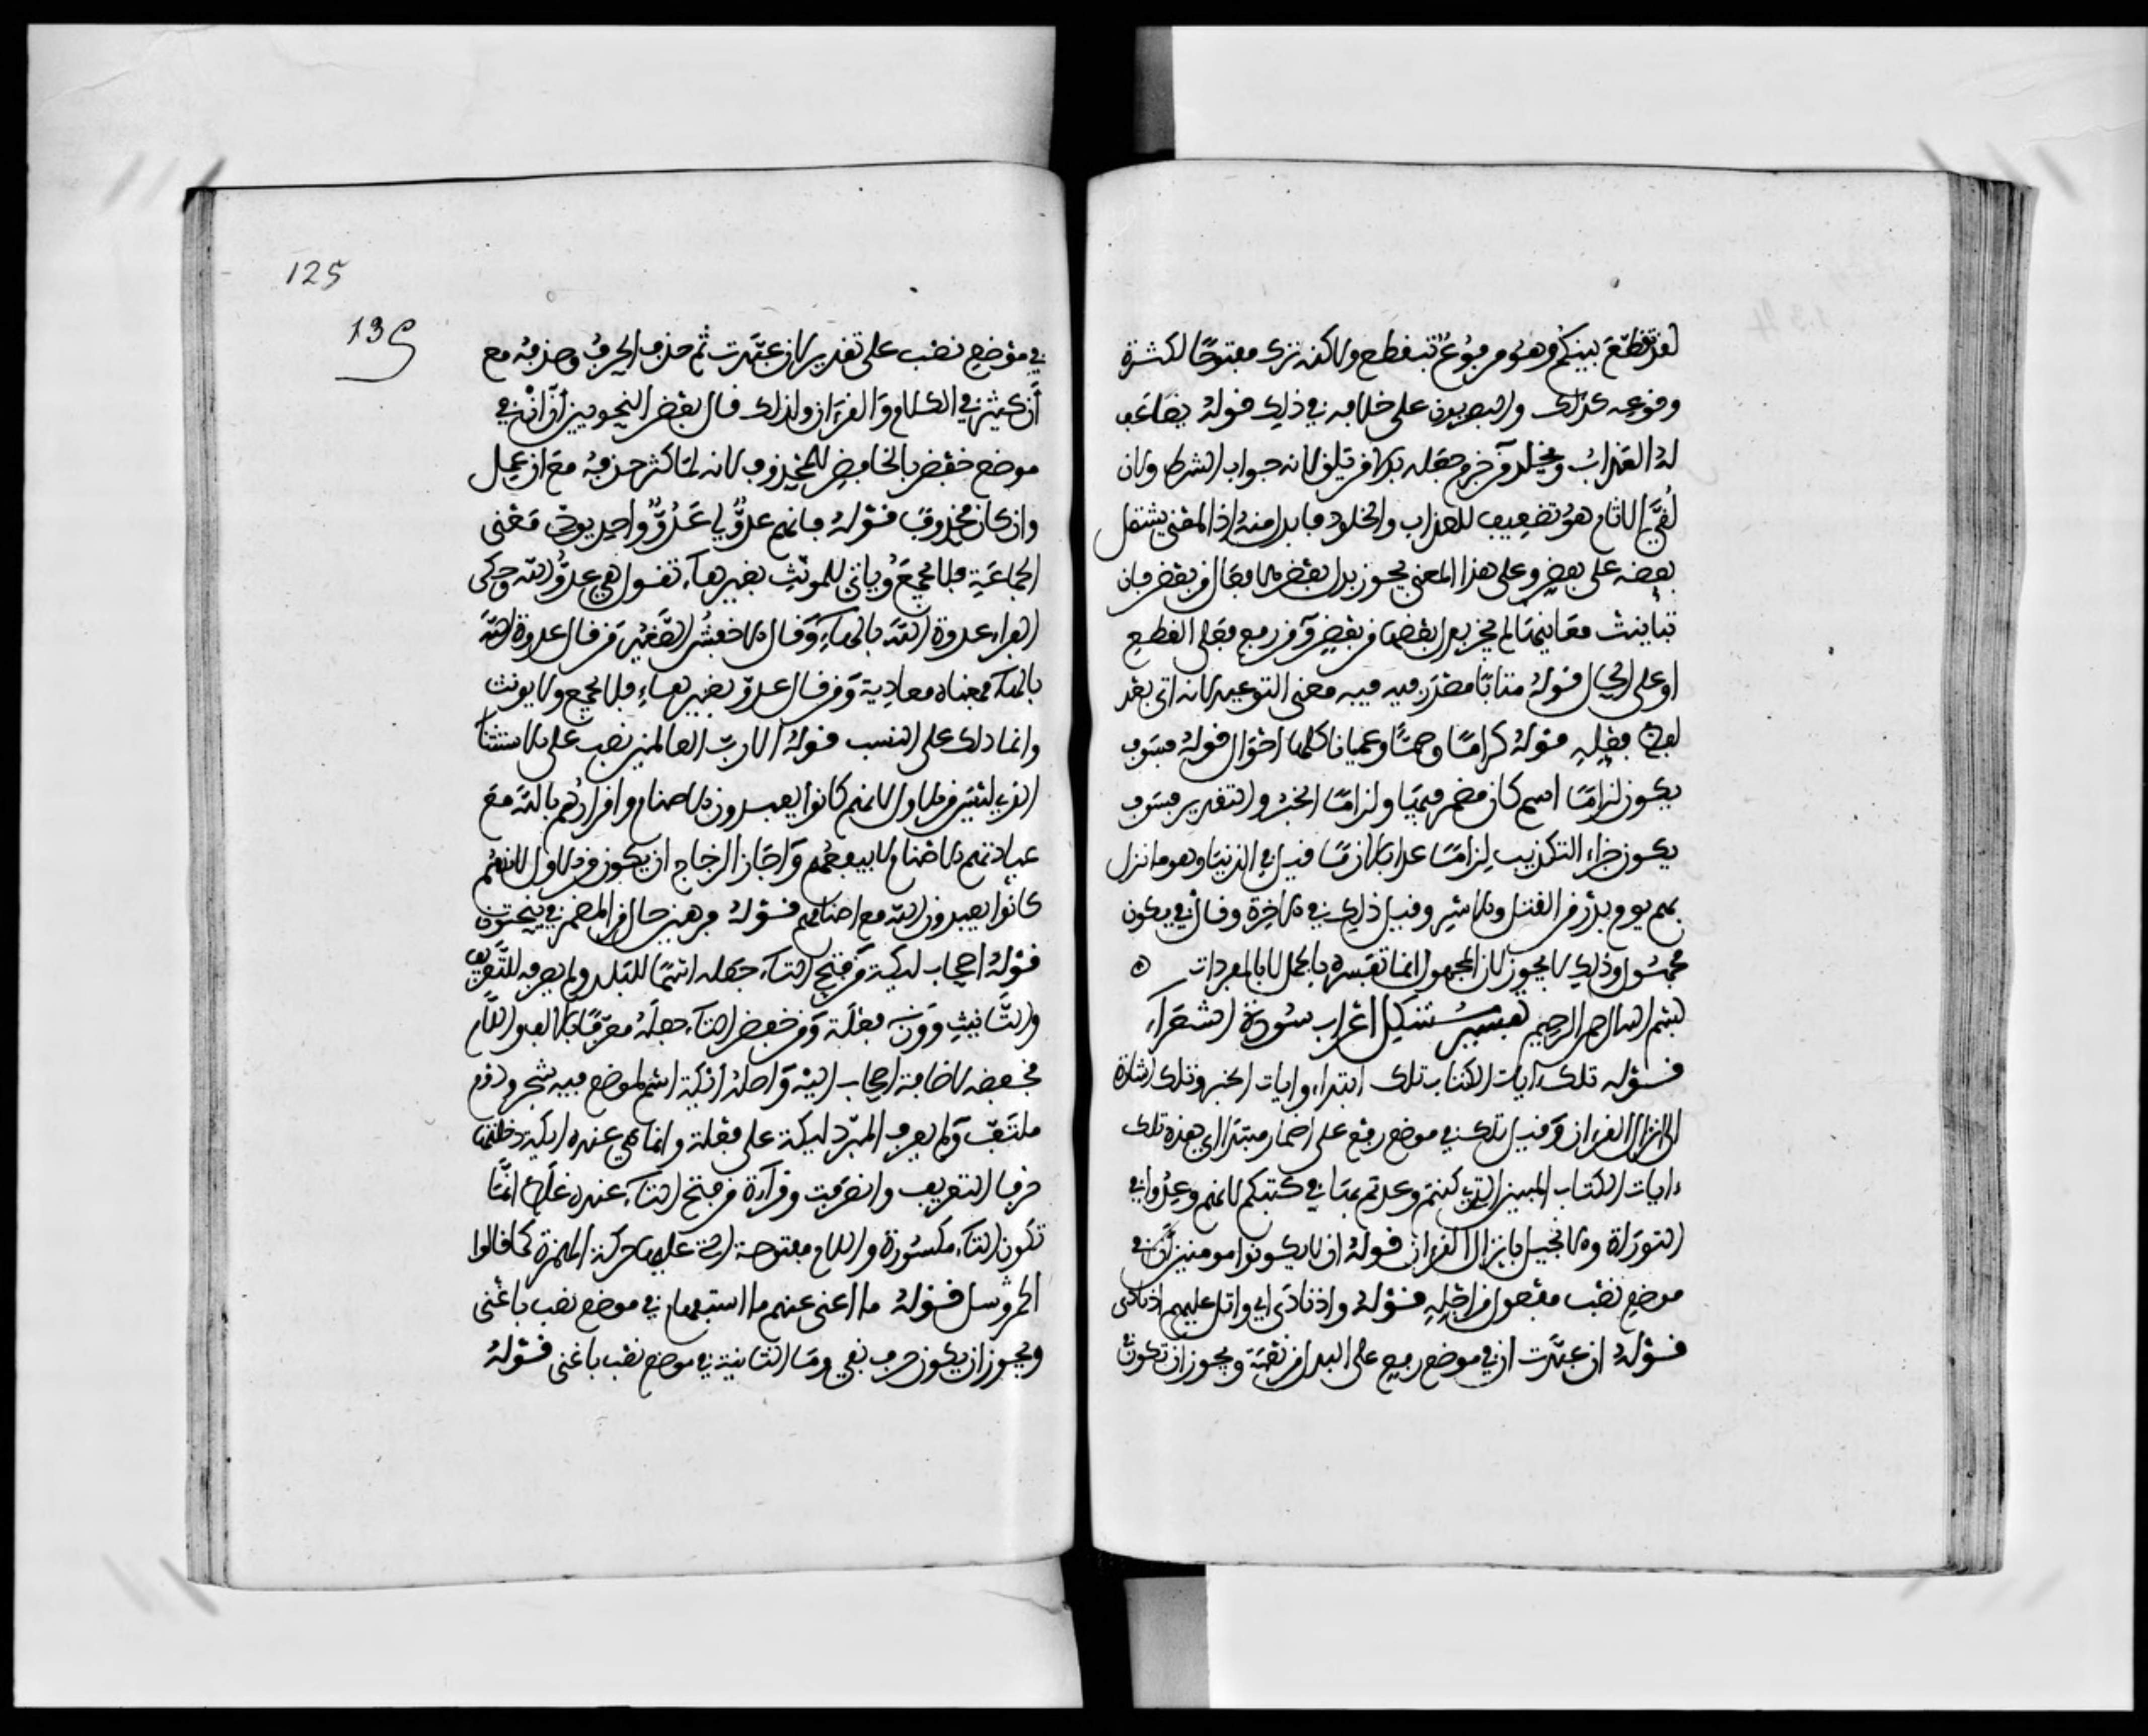 لقد تقطع بينكم وهو مرفوع بتقطع ولاكنه ترك مفتوحا لكثرة
وقوعه كذلك والبصريون على خلافه في ذلك قوله يضاعف
له العذاب ويخلد من جزم جعله بدلا من يلق لانه جواب الشرط ولان
لقي الاثام هو تضعيف العذاب والخلود فابدل منه اذ المعنى يشتمل
بعضه على بعض وعلى هذا المعنى يجوز بدل بعض الافعال من بعض فان
تباينت معانيها لم يجز بدل بعضها من بعض ومن رفع فعلى القطع
او على الحال قوله متابا مصدر فيه معنى التوكيد لانه اتى بعد
لفظ فعله قوله كراما وصما وعميانا كلها احوال قوله فسوف
يكون لزاما اسم كان مضمر فيها ولزاما الخبر والتقدير فسوف
يكون جزاء التكذيب لزاما عذابا لازما فقيل في الدنيا وهو ما نزل
بهم يوم بدر من القتل والاسر وقيل ذلك في الاخرة وقال في يكون
مجهول وذلك لا يجوز لان المجهول انما تفسره بالجمل لا بالمفردات
بسم الله الرحمن الرحيم تفسير مشكل اعراب سورة الشعراء
قوله تلك ءايات الكتاب تلك ابتداء وايات الخبر وتلك اشارة
الى انزال القرءان وقيل تلك في موضع رفع على اضمار مبتدا اي هذه تلك
ءايات الكتاب المبين التي كنتم وعدتم بها في كتبكم لانهم وعدوا في
التوراة والانجيل بانزال القرءان قوله ان لا يكونوا مومنين ان في
موضع نصب مفعول من اجله قوله واذ نادى اي واتل عليهم اذ نادى
قوله ان عبدت ان في موضع رفع على البدل من نعمة ويجوز ان تكون
125
135
في موضع نصب على تقدير لان عبدت ثم حذف الحرف وحذفه مع
ان كثير في الكلام والقرءان ولذلك قال بعض النحويين ان ان في
موضع خفض بالخافض المحذوف لانه لما كثر حذفه مع ان عمل
وان كان محذوفا قوله فانهم عدو لي عدو واحد يودي معنى
الجماعة فلا يجمع ويأتي للمونث بغير هاء تقول هي عدو الله وحكى
الفراء عدوة الله بالهاء وقال الاخفش الصغير من قال عدوة الله
بالهاء فمعناه معادية ومن قال عدو بغير هاء فلا يجمع ولا يونث
وانما ذلك على النسب قوله الا رب العالمين نصب على الاستثنا
الذي ليس من الاول لانهم كانوا يعبدون الاصنام واقرارهم بالله مع
عبادتهم الاصنام لا ينفعهم واجاز الزجاج ان يكون من الاول لانهم
كانوا يعبدون الله مع اصنامهم قوله فرهين حال من المضمر في ينحتون
قوله اصحاب ليكة من فتح التاء جعله اسما للبلد ولم يصرفه للتعريف
والتانيث ووزنه فعلة ومن خفض التاء جعله معرفا بالالف واللام
فخفضه لاضافة اصحاب اليه واصله ايكة اسم لموضع فيه شجر ودوم
ملتف ولم يعرف المبرد ليكة على فعلة وانما هي عنده ايكة دخلها
حرفا التعريف وانصرفت وقراءة من فتح التاء عنده غلط انما
تكون التاء مكسورة واللام مفتوحة القت عليها حركة الهمزة كما قالوا
الحمر وسل قوله ما اغنى عنهم ما استفهام في موضع نصب باغنى
ويجوز ان يكون حرف نفي وما الثانية في موضع نصب باغنى قوله